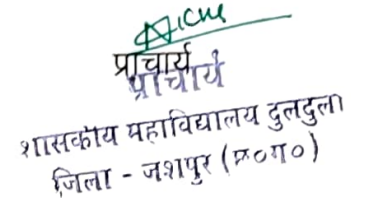 प्राचार्य
प्राचार्य
शासकीय महाविद्यालय दुलदुला
जिला - जशपुर (छ०ग०)